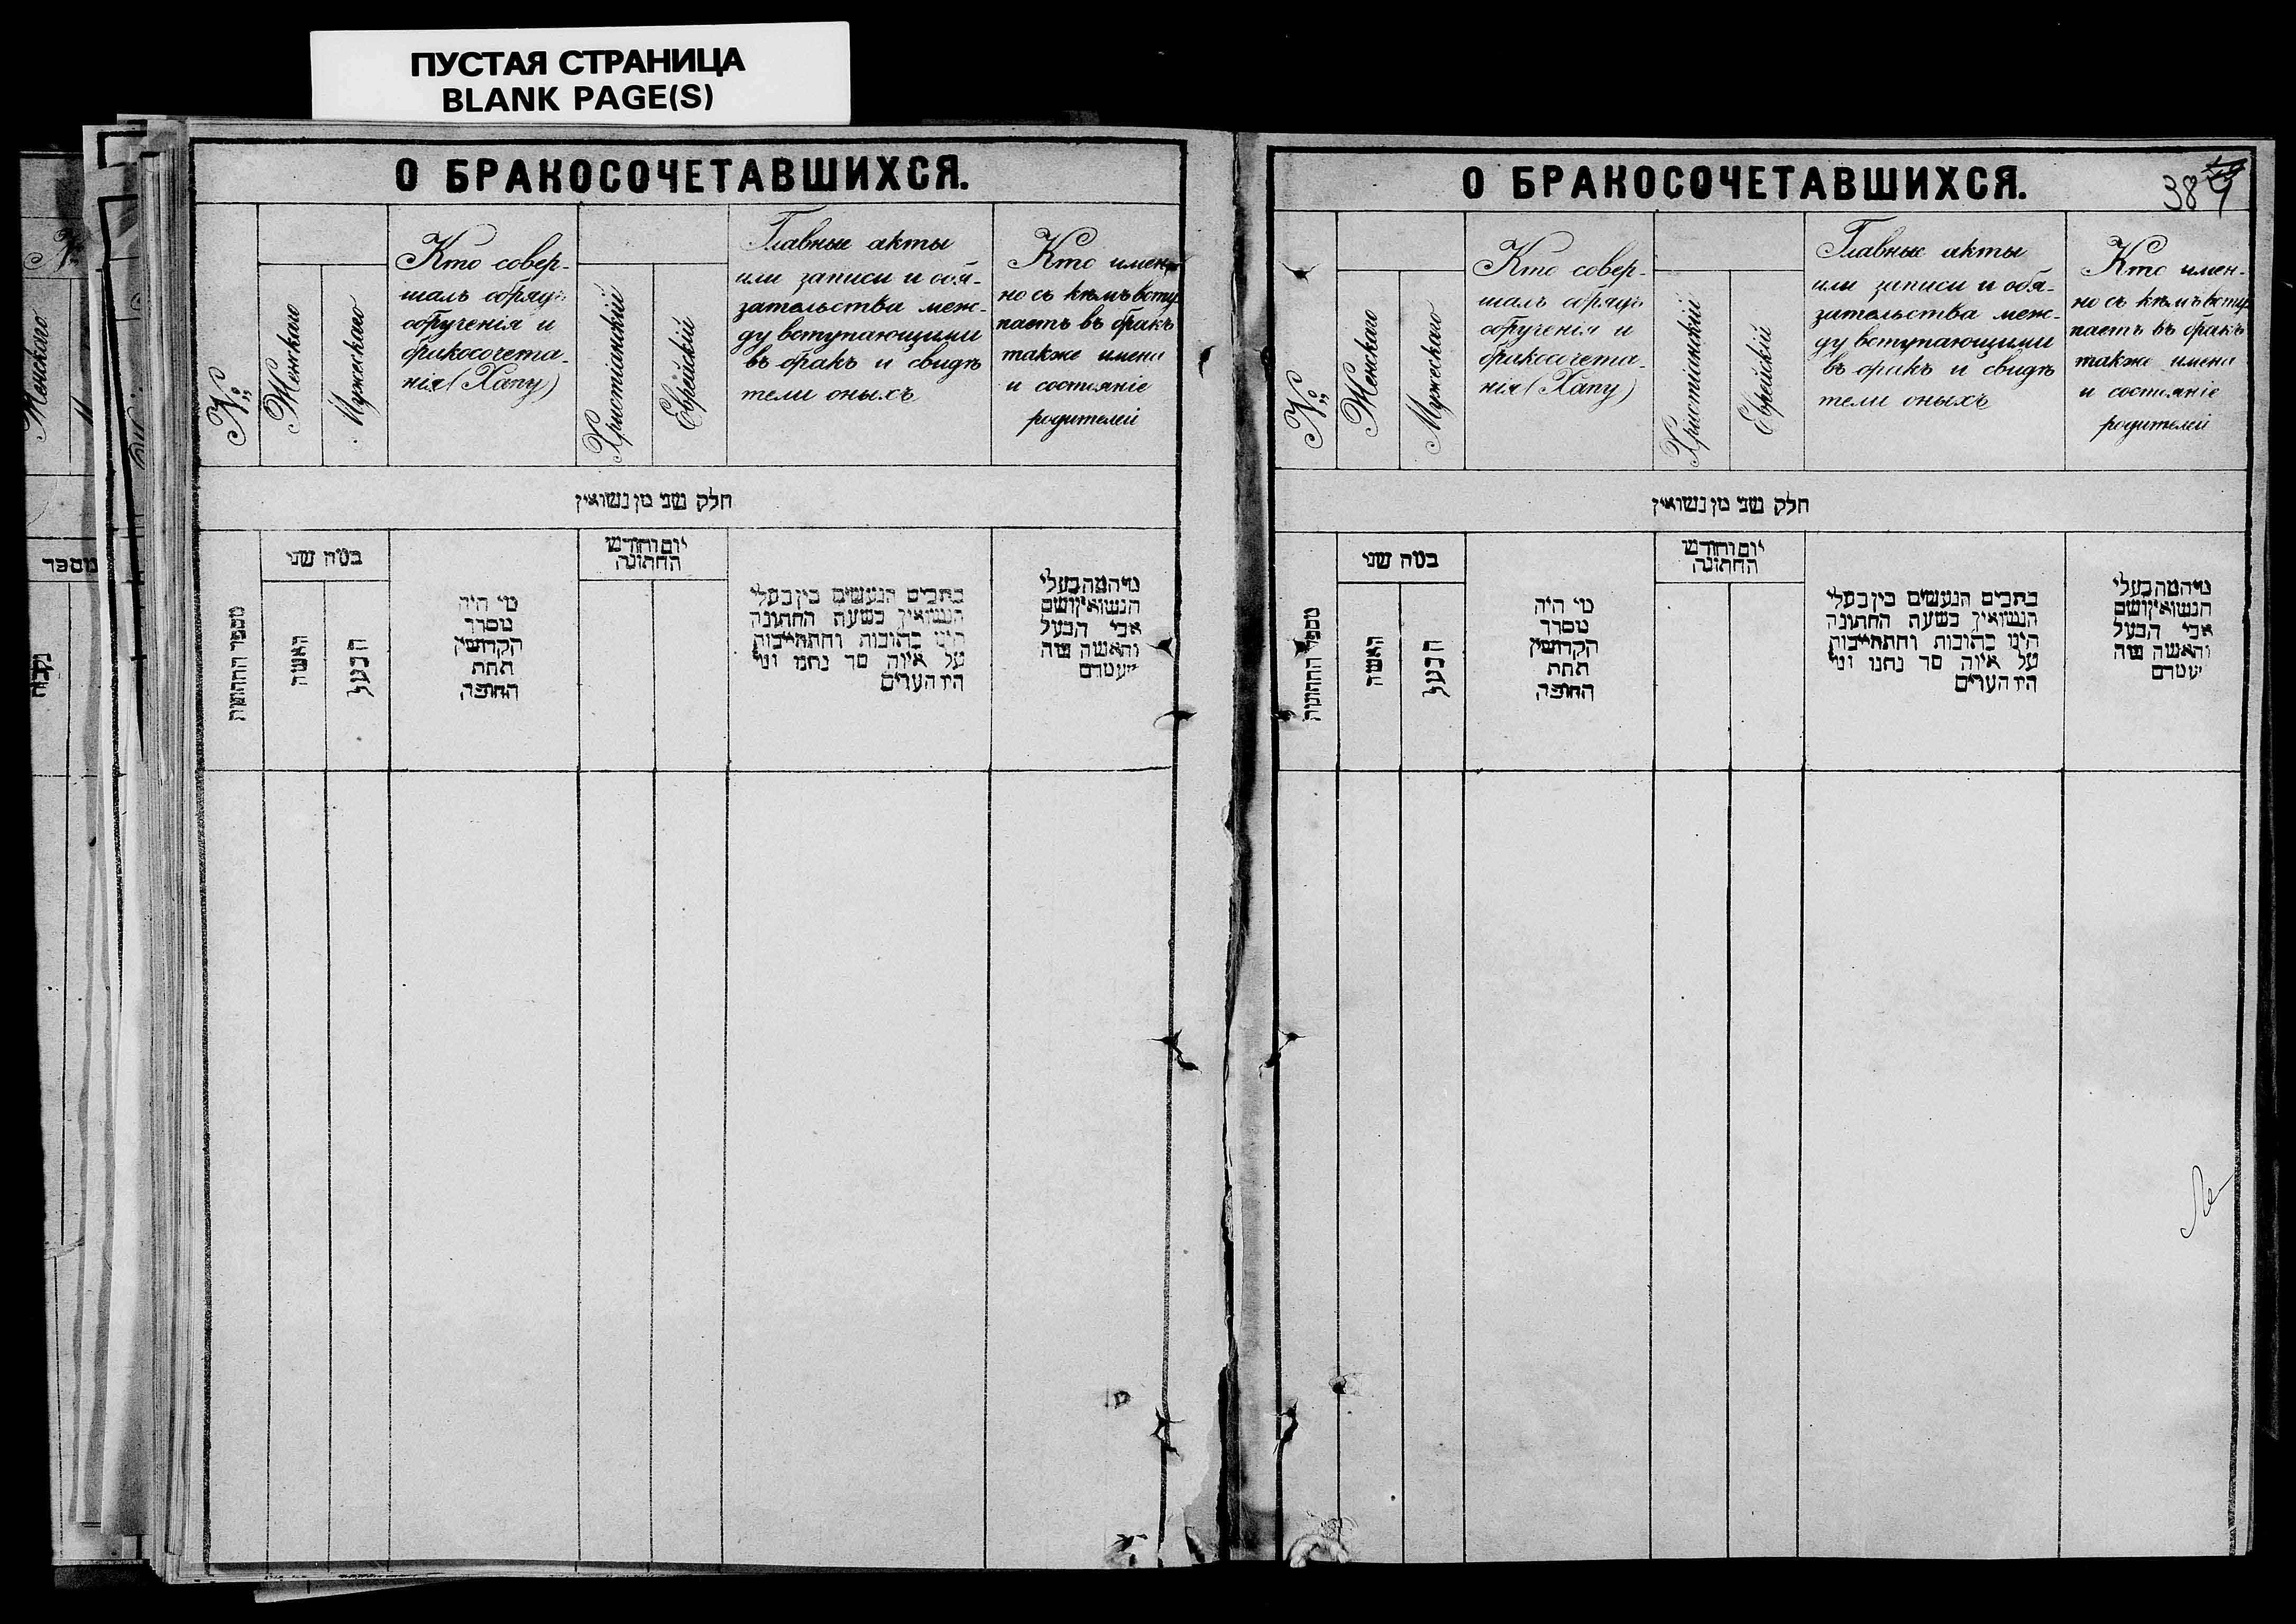 ПУСТАЯ СТРАНИЦА
BLANK PAGE(S)
О БРАКОСОЧЕТАВШИХСЯ.
№
Женскаго
Мужескаго
Кто совер-
шалъ обрядъ
обрученія и
бракосочета-
нія (Хапу)
Христіанскій
Еврейскій
Главные акты
или записи и обя-
зательства меж-
ду вступающими
въ бракъ и свидѣ
тели оныхъ
Кто имен-
но съ кѣмъ всту
паетъ въ бракъ
также имена
и состояніе
родителей
חלק שני מן נשואין
מספר החתונות
כמה שני
האשה
הבעל
מי היה
מסדר
הקדושין
תחת
החופה
יום וחודש
החתונה
כתבים הנעשים בין בעלי
הנשואין בשעת החתונה
היינו כתובות והתחייבות
על איזה סך נתנו ומי
היו העדים
מי המה בעלי
הנשואין ושם
אבי הבעל
והאשה ומה
מעמדם
О БРАКОСОЧЕТАВШИХСЯ.
38
№
Женскаго
Мужескаго
Кто совер-
шалъ обрядъ
обрученія и
бракосочета-
нія (Хапу)
Христіанскій
Еврейскій
Главные акты
или записи и обя-
зательства меж-
ду вступающими
въ бракъ и свидѣ
тели оныхъ
Кто имен-
но съ кѣмъ всту
паетъ въ бракъ
также имена
и состояніе
родителей
חלק שני מן נשואין
מספר החתונות
כמה שני
האשה
הבעל
מי היה
מסדר
הקדושין
תחת
החופה
יום וחודש
החתונה
כתבים הנעשים בין בעלי
הנשואין בשעת החתונה
היינו כתובות והתחייבות
על איזה סך נתנו ומי
היו העדים
מי המה בעלי
הנשואין ושם
אבי הבעל
והאשה ומה
מעמדם
№
Женскаго
מספר
נקבה